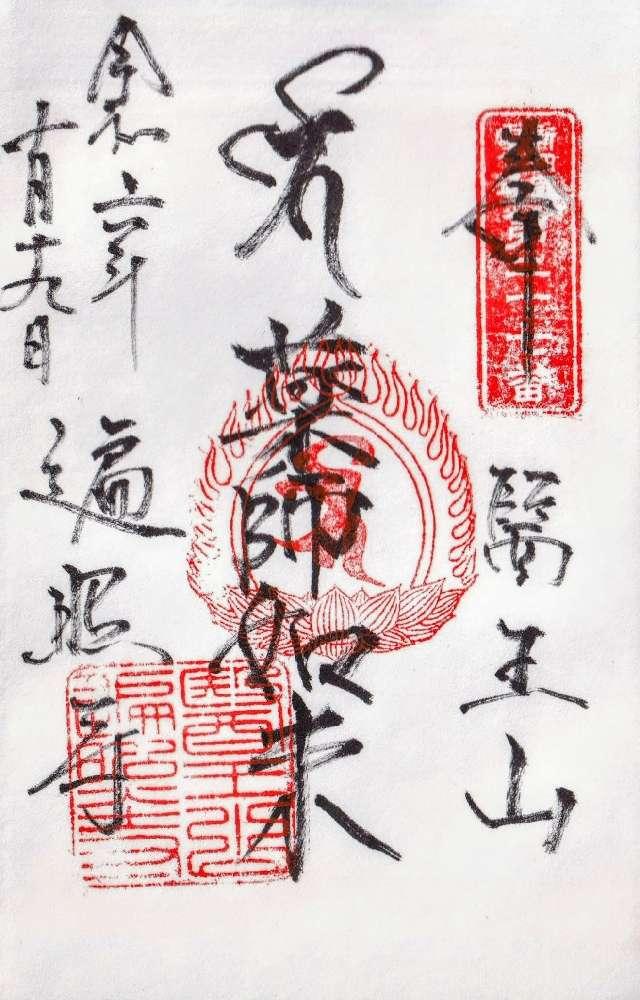 奉
醫王山
薬師如来
令和六年
十月十九日
遍照寺
醫王山
遍照寺